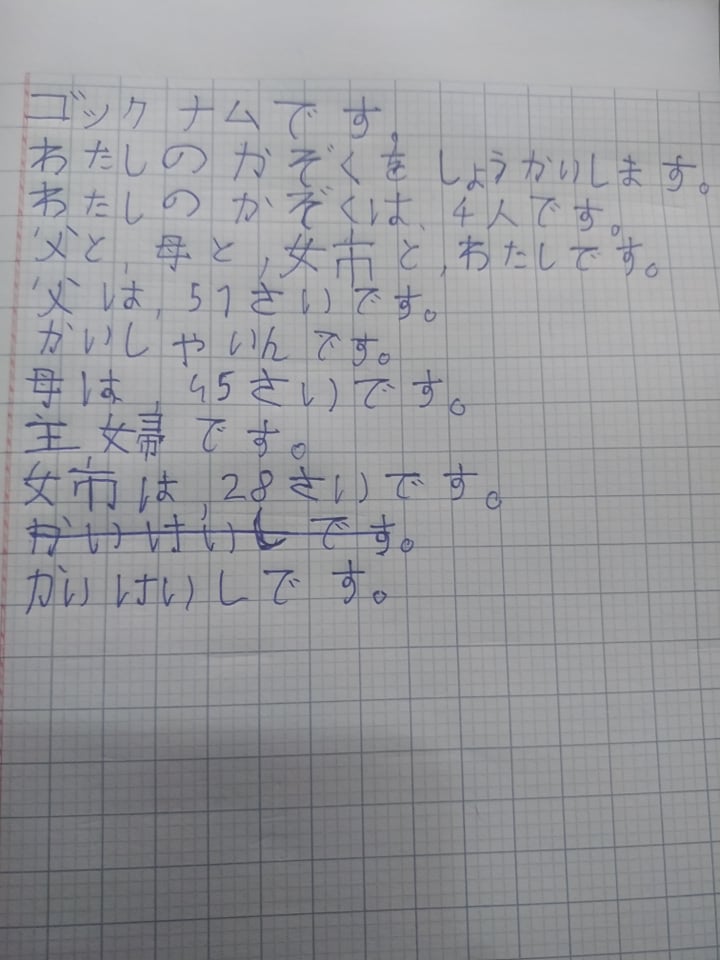 ゴック ナムです。
わたしの かぞくを しょうかいします。
わたしの かぞくは、4人です。
父と、母と、姉と、わたしです。
父は、51さいです。
かいしゃいんです。
母は、45さいです。
主婦です。
姉は、28さいです。
がいけいしです。
かいけいしです。